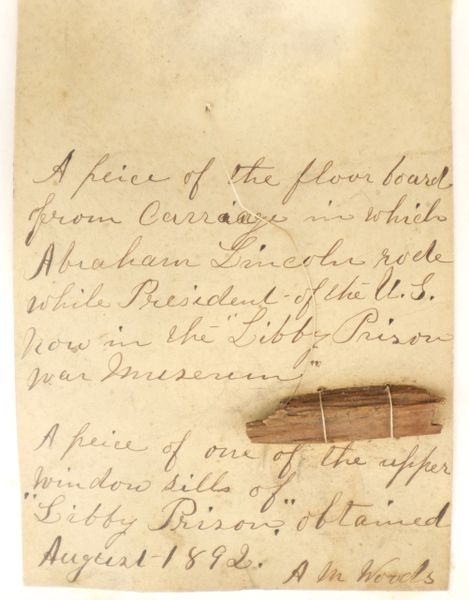 A peice of the floor board
from Carriage in which
Abraham Lincoln rode
while President of the U.S.
now in the "Libby Prison
war Museum"
A peice of one of the upper
window sills of
"Libby Prison," obtained
August 1892.
A M Woods